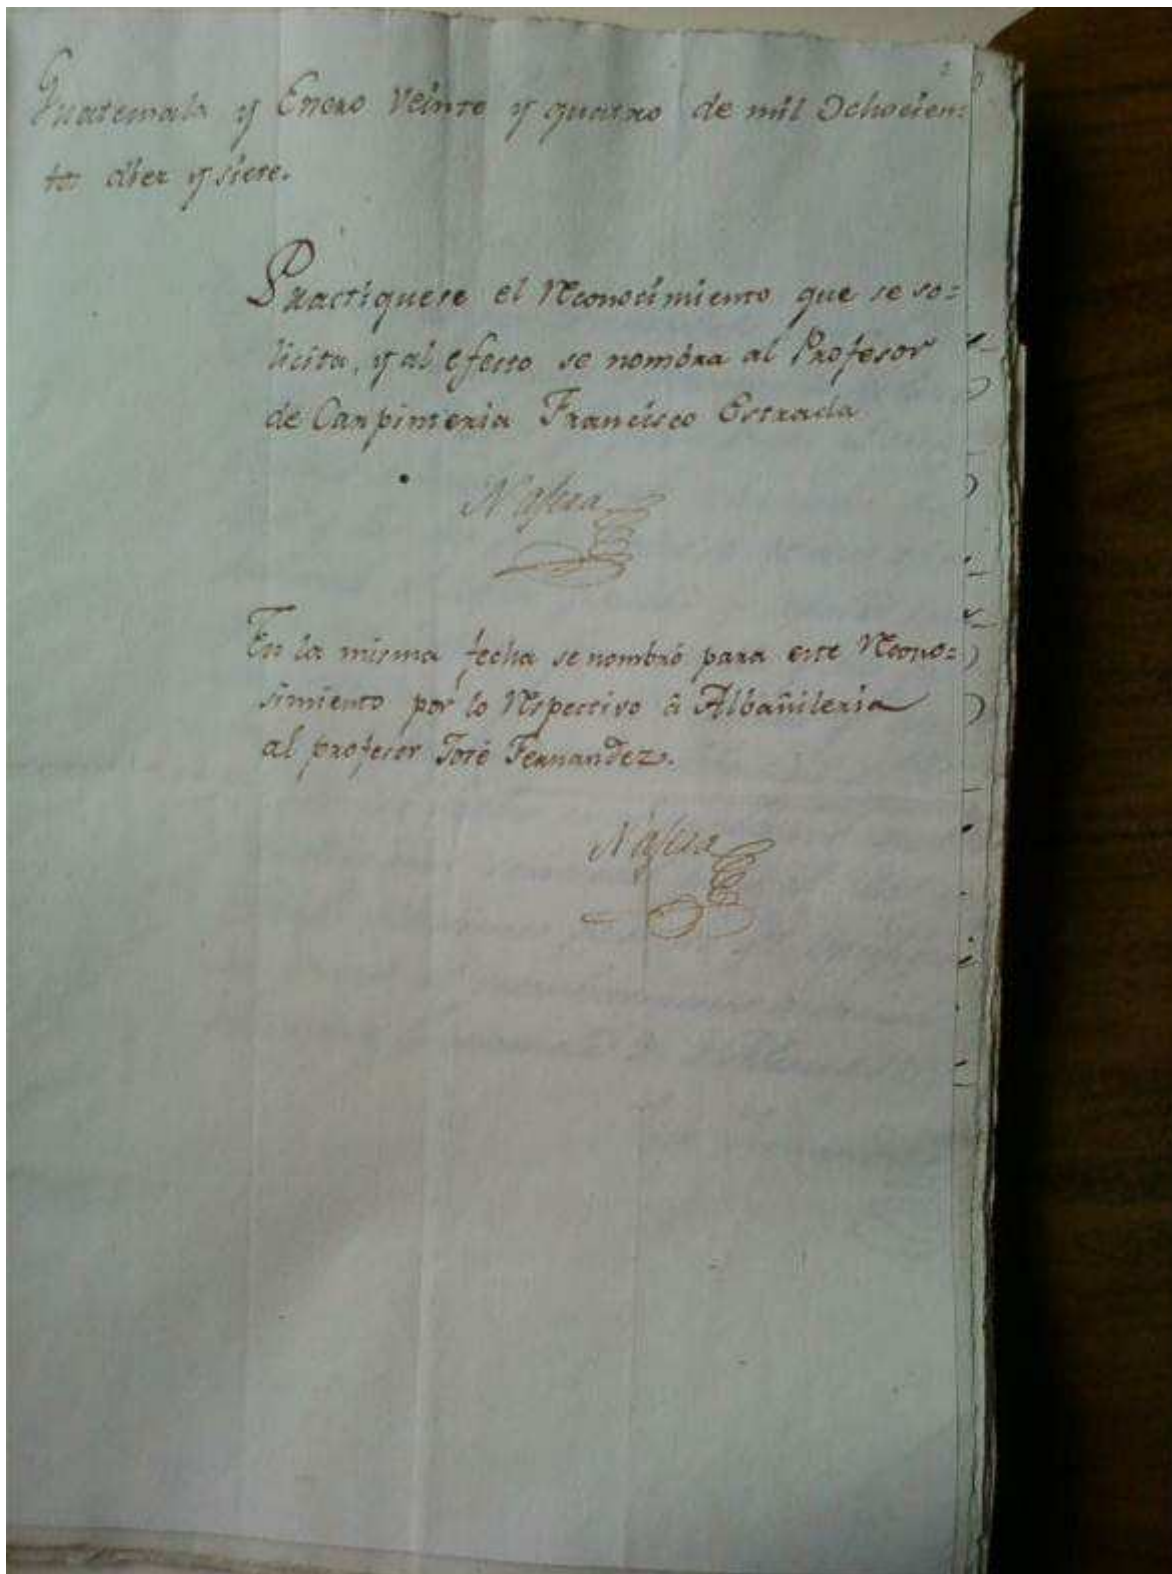 2
Guatemala y Enero veinte y quatro de mil Ochocien=
tos diez y siete.
Practiquese el Reconocimiento que se so=
licita, y al efecto se nombra al Profesor
de Carpinteria Francisco Estrada
Najera
En la misma fecha se nombró para este Recono=
simiento por lo Respectivo á Albañileria
al profesor José Fernandez.
Najera